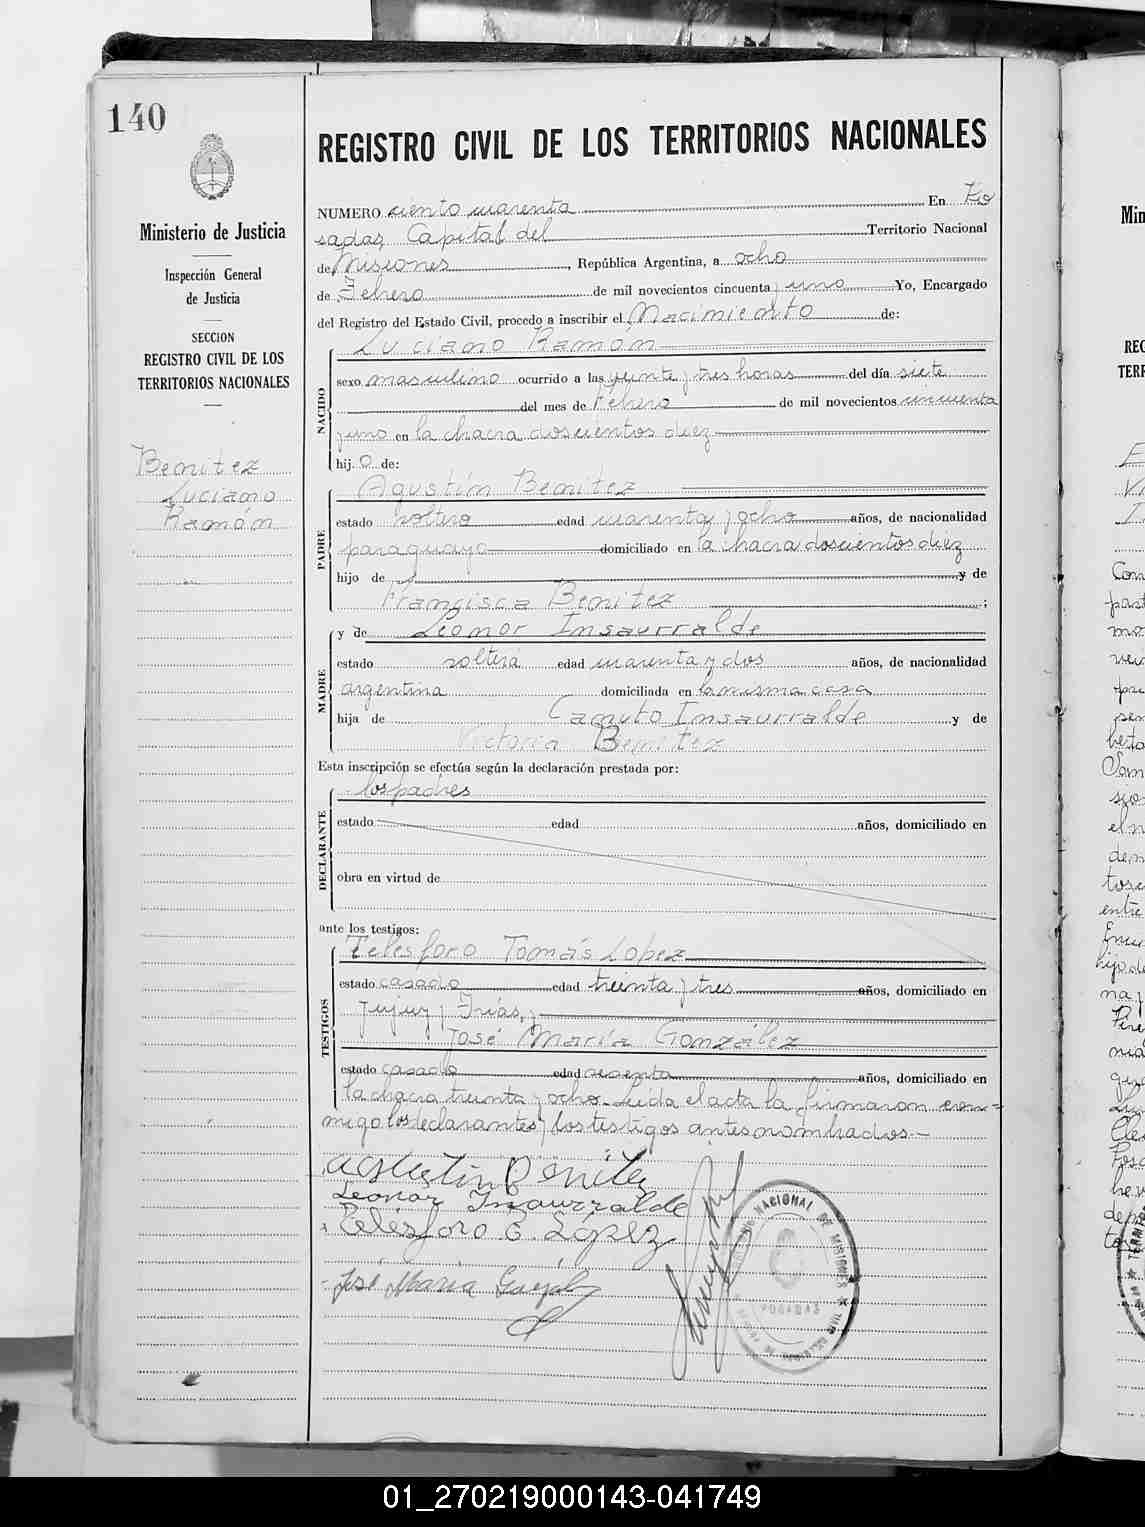 140
Ministerio de Justicia
Inspección General
de Justicia
SECCION
REGISTRO CIVIL DE LOS
TERRITORIOS NACIONALES
Benitez
Luciano
Ramón
REGISTRO CIVIL DE LOS TERRITORIOS NACIONALES
NUMERO ciento cuarenta En Po
sadas Capital del Territorio Nacional
de Misiones, República Argentina, a ocho
de Febrero de mil novecientos cincuenta y uno Yo, Encargado
del Registro del Estado Civil, procedo a inscribir el Nacimiento de:
NACIDO
Luciano Ramón
sexo masculino ocurrido a las veinte y tres horas del día siete
del mes de Febrero de mil novecientos cincuenta
y uno en la chacra doscientos diez
hijo de:
PADRE
Agustín Benitez
estado soltero edad cuarenta y ocho años, de nacionalidad
paraguayo domiciliado en la chacra doscientos diez
hijo de y de
Francisca Benitez ;
MADRE
y de Leonor Insaurralde
estado soltera edad cuarenta y dos años, de nacionalidad
argentina domiciliada en la misma casa
hija de Canuto Insaurralde y de
Victoria Benitez
Esta inscripción se efectúa según la declaración prestada por:
DECLARANTE
los padres
estado edad años, domiciliado en
obra en virtud de
ante los testigos:
TESTIGOS
Telésforo Tomás Lopez
estado casado edad treinta y tres años, domiciliado en
Jujuy y Frías, y
José María González
estado casado edad sesenta años, domiciliado en
la chacra treinta y ocho. Leída el acta la firmaron con-
migo los declarantes y los testigos antes nombrados.-
Agustin Benitez
Leonor Insaurralde
Telésforo T. López
José Maria González
NACIONAL DE MISIONES
POSADAS
01_270219000143-041749